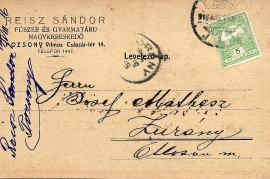 REISZ SÁNDOR
FŰSZER ÉS GYARMATÁRU
NAGYKERESKEDŐ
POZSONY Vilmos Császár-tér 14.
TELEFON 1447.
Levelező-lap.
Herrn
Josef Mathesz
Zurány
Moson m.
Reisz Sándor
Pozsony